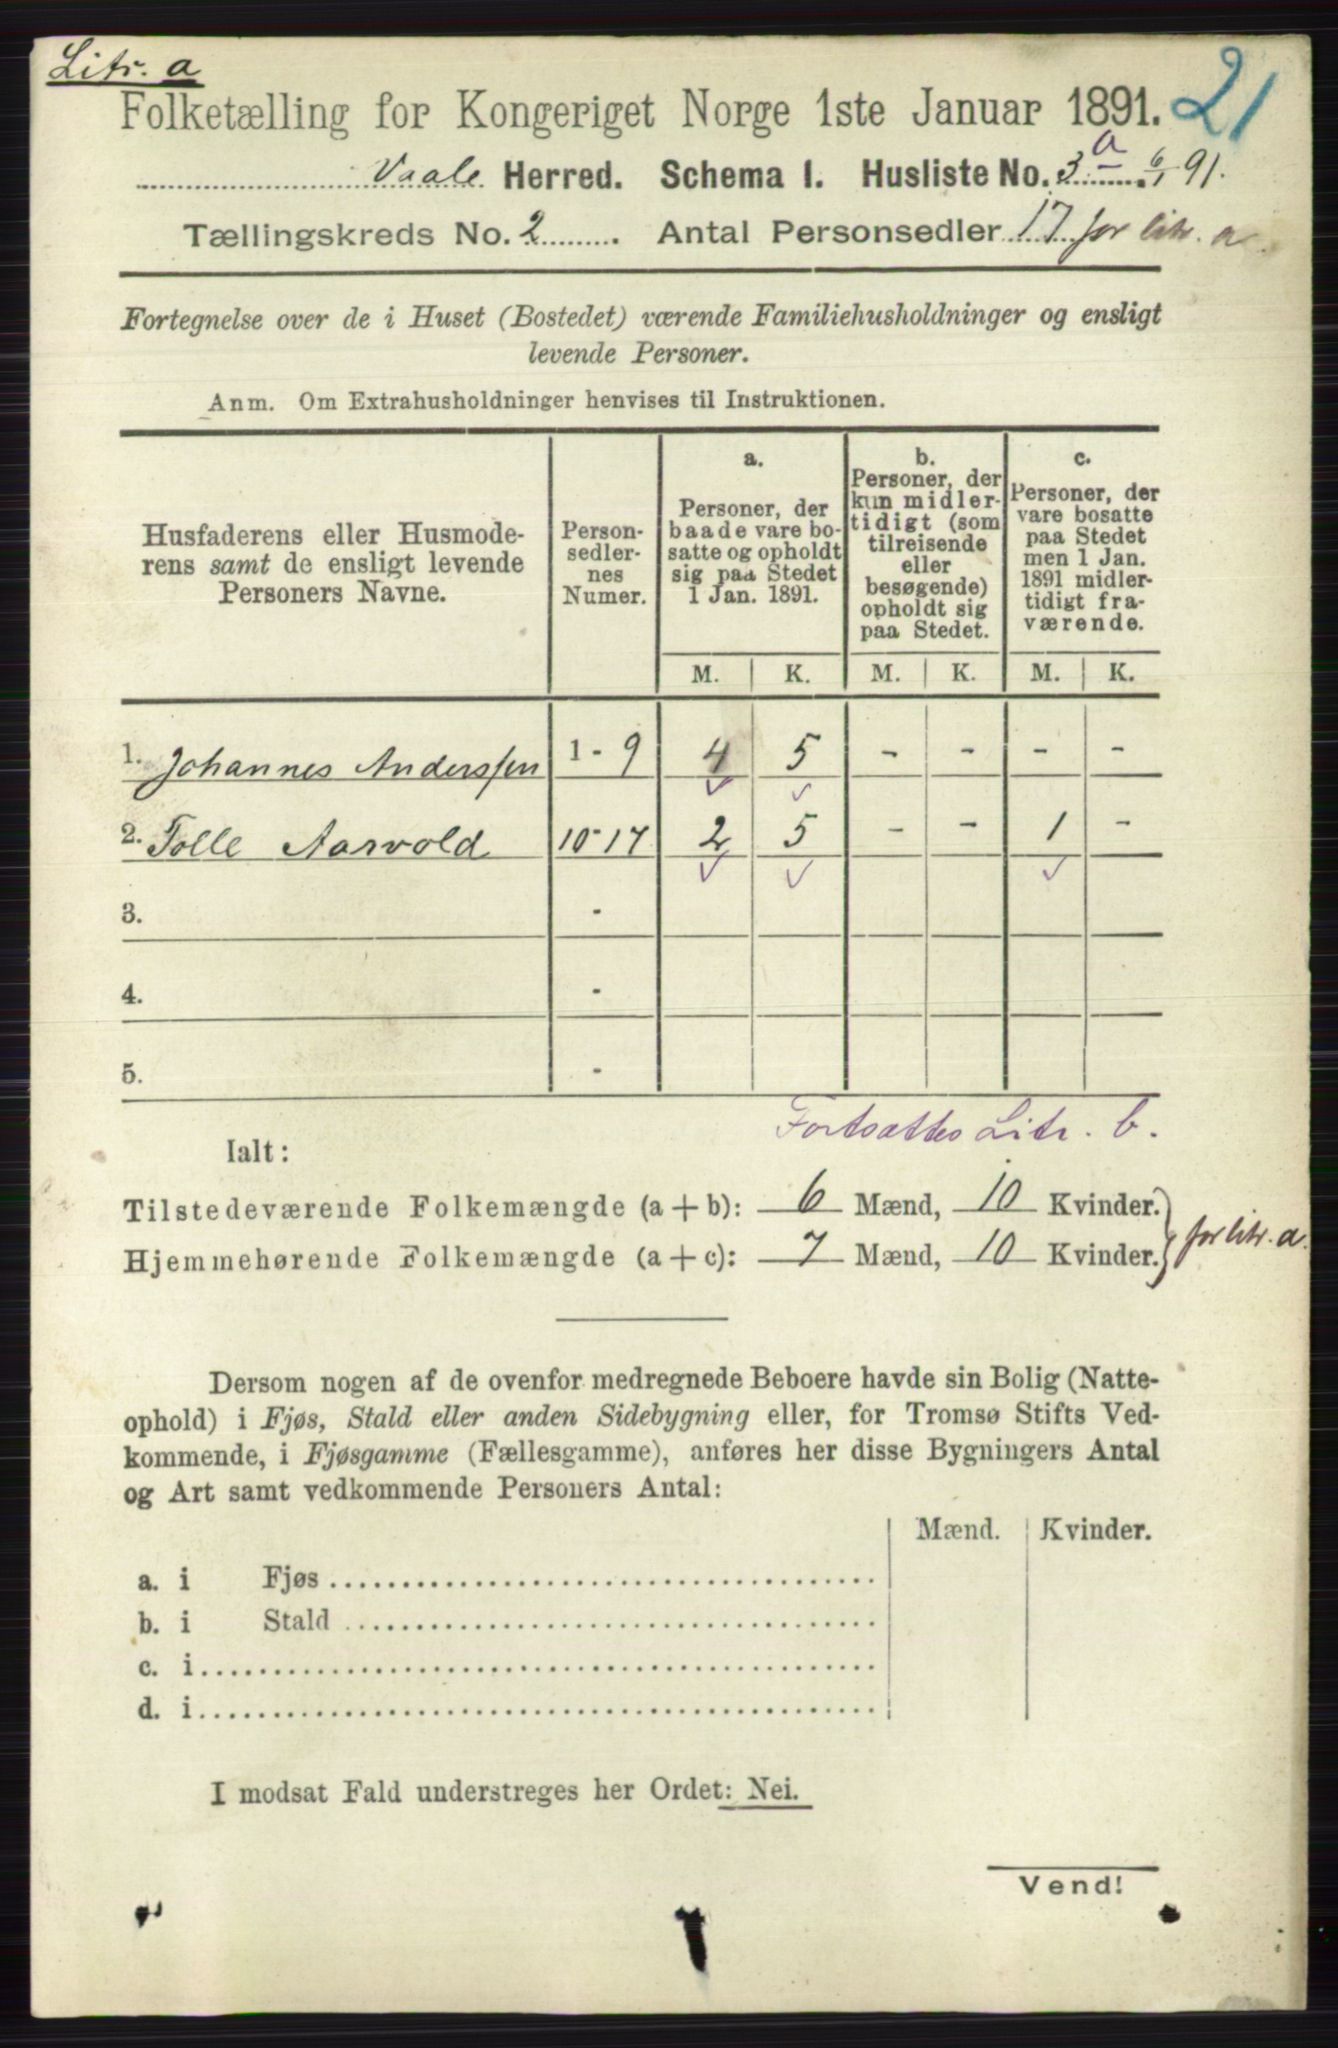 Litr. a
21
Folketælling for Kongeriget Norge 1ste Januar 1891.
Vaale Herred. Schema 1. Husliste No. 3 a 6/1 91.
Tællingskreds No. 2. Antal Personsedler 17 for litr. a.
Fortegnelse over de i Huset (Bostedet) værende Familiehusholdninger og ensligt
levende Personer.
Anm. Om Extrahusholdninger henvises til Instruktionen.
Husfaderens eller Husmode-
rens samt de ensligt levende
Personers Navne.
Person-
sedler-
nes
Numer.
a.
Personer, der
baade vare bo-
satte og opholdt
sig paa Stedet
1 Jan. 1891.
b.
Personer, der
kun midler-
tidigt (som
tilreisende
eller
besøgende)
opholdt sig
paa Stedet.
c.
Personer, der
vare bosatte
paa Stedet
men 1 Jan.
1891 midler-
tidigt fra-
værende.
M. K. M. K. M. K.
1. Johannes Anderssen 1 - 9 4 5 - - - -
2. Tolle Aasvold 10-17 2 5 - - 1 -
3. -
4. -
5. -
Fortsættes Litr. b.
Ialt:
Tilstedeværende Folkemængde (a + b): 6 Mænd, 10 Kvinder.
Hjemmehørende Folkemængde (a + c): 7 Mænd, 10 Kvinder.
for litr. a.
Dersom nogen af de ovenfor medregnede Beboere havde sin Bolig (Natte-
ophold) i Fjøs, Stald eller anden Sidebygning eller, for Tromsø Stifts Ved-
kommende, i Fjøsgamme (Fællesgamme), anføres her disse Bygningers Antal
og Art samt vedkommende Personers Antal:
Mænd. Kvinder.
a. i Fjøs
b. i Stald
c. i
d. i
I modsat Fald understreges her Ordet: Nei.
Vend!